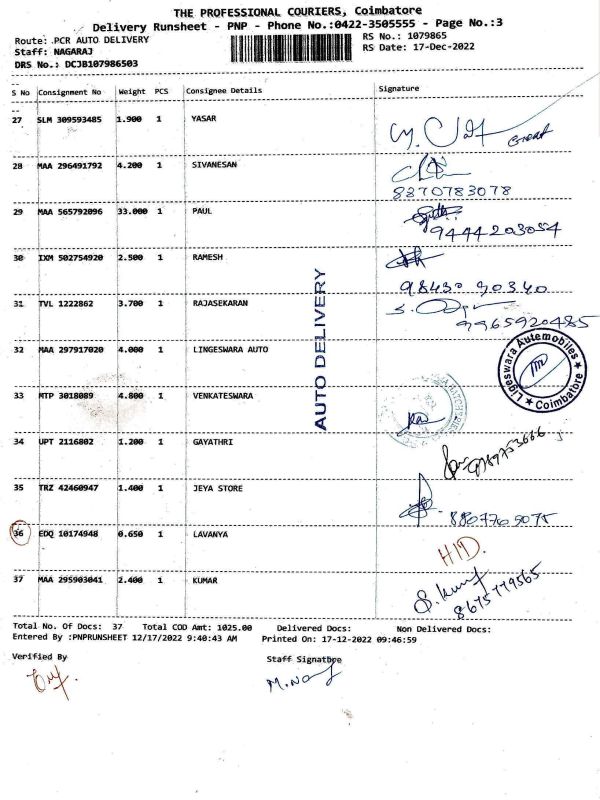 THE PROFESSIONAL COURIERS, Coimbatore
Delivery Runsheet - PNP - Phone No.:0422-3505555 - Page No.:3
Route: PCR AUTO DELIVERY
RS No.: 1079865
Staff: NAGARAJ
RS Date: 17-Dec-2022
DRS No.: DCJB107986503
S No Consignment No Weight PCS Consignee Details Signature
27 SLM 309593485 1.900 1 YASAR
28 MAA 296491792 4.200 1 SIVANESAN
8870783078
29 MAA 565792096 33.000 1 PAUL
9444203054
30 IXM 502754920 2.500 1 RAMESH
98430 90340
31 TVL 1222862 3.700 1 RAJASEKARAN
9965920485
AUTO DELIVERY
32 MAA 297917020 4.000 1 LINGESWARA AUTO
Ligeswara Autemobiles
★ Coimbatore ★
33 MTP 3018089 4.800 1 VENKATESWARA
34 UPT 2116802 1.200 1 GAYATHRI
35 TRZ 42460947 1.400 1 JEYA STORE
8807705075
36 EDQ 10174948 0.650 1 LAVANYA
H/D.
37 MAA 295903041 2.400 1 KUMAR
8675779565
Total No. Of Docs: 37 Total COD Amt: 1025.00 Delivered Docs: Non Delivered Docs:
Entered By :PNPRUNSHEET 12/17/2022 9:40:43 AM Printed On: 17-12-2022 09:46:59
Verified By
Staff Signatore